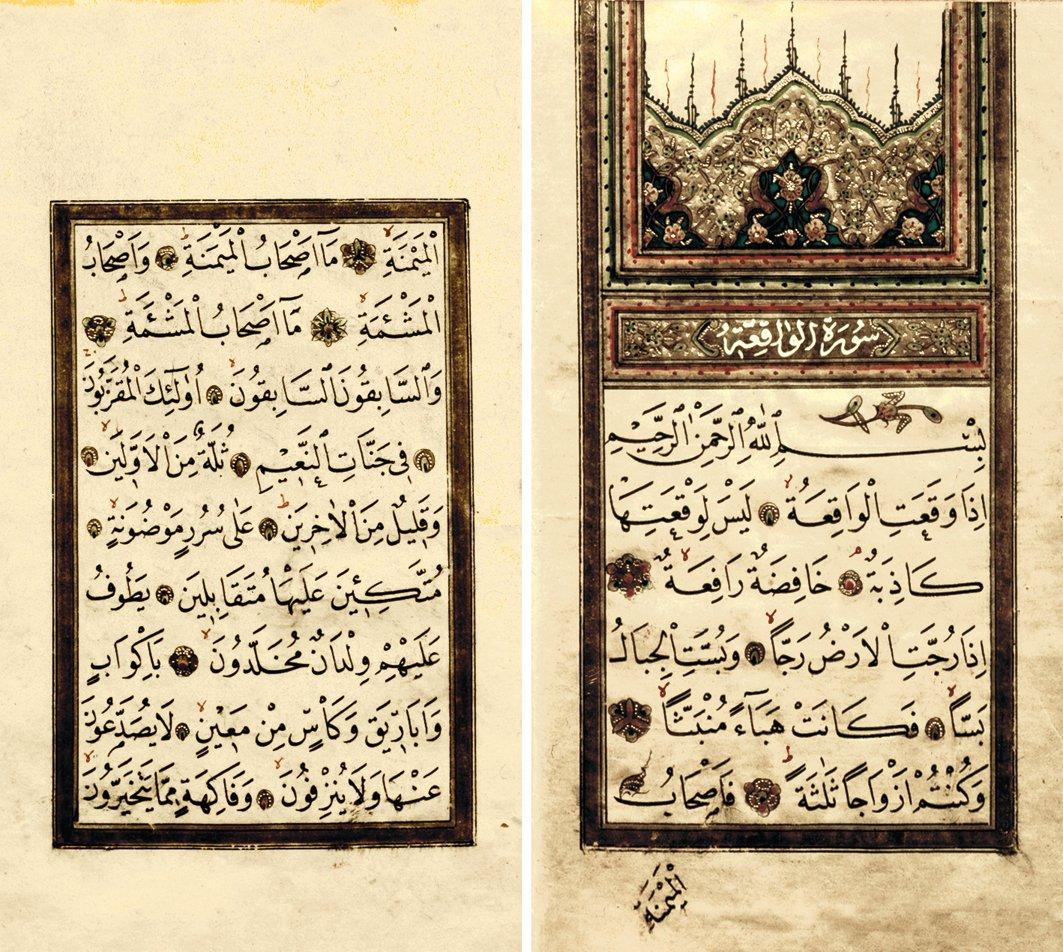 سُورَةُ الْوَاقِعَةِ
بِسْمِ اللّٰهِ الرَّحْمٰنِ الرَّحِيْمِ
اِذَا وَقَعَتِ الْوَاقِعَةُ لَيْسَ لِوَقْعَتِهَا
كَاذِبَةٌ خَافِضَةٌ رَافِعَةٌ
اِذَا رُجَّتِ الْاَرْضُ رَجًّا وَبُسَّتِ الْجِبَالُ
بَسًّا فَكَانَتْ هَبَٓاءً مُنْبَثًّا
وَكُنْتُمْ اَزْوَاجًا ثَلٰثَةً فَاَصْحَابُ
الْمَيْمَنَةِ
الْمَيْمَنَةِ مَٓا اَصْحَابُ الْمَيْمَنَةِ وَاَصْحَابُ
الْمَشْئَمَةِ مَٓا اَصْحَابُ الْمَشْئَمَةِ
وَالسَّابِقُونَ السَّابِقُونَ اُولٰٓئِكَ الْمُقَرَّبُونَ
فِي جَنَّاتِ النَّعِيْمِ ثُلَّةٌ مِنَ الْاَوَّلِينَ
وَقَلِيلٌ مِنَ الْاٰخِرِينَ عَلٰى سُرُرٍ مَوْضُونَةٍ
مُتَّكِئِينَ عَلَيْهَا مُتَقَابِلِينَ يَطُوفُ
عَلَيْهِمْ وِلْدَانٌ مُخَلَّدُونَ بِاَكْوَابٍ
وَاَبَارِيقَ وَكَاْسٍ مِنْ مَعِينٍ لَا يُصَدَّعُونَ
عَنْهَا وَلَا يُنْزِفُونَ وَفَاكِهَةٍ مِمَّا يَتَخَيَّرُونَ